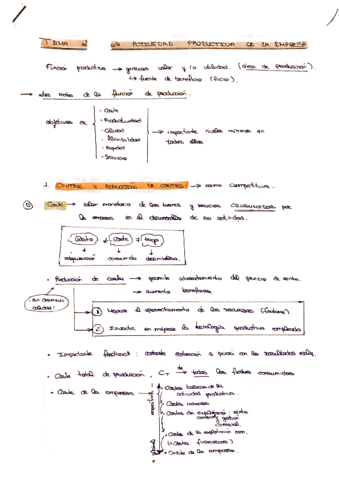 TEMA 2 LA ACTIVIDAD PRODUCTIVA DE LA EMPRESA
Función productiva → generar valor y la utilidad. (área de producción).
↳ fuente de beneficio (lucro).
→ Las metas de la función de producción.
objetivos de
- Coste
- Productividad
- Calidad
- Flexibilidad
- Rapidez
- Servicio
→ importante niveles mínimos en
todos ellos
1. CONTROL Y REDUCCIÓN DE COSTES → arma competitiva.
① Coste → valor monetario de los bienes y servicios CONSUMIDOS por
la empresa en el desarrollo de su actividad.
Gasto ≠ Coste ≠ Pago
adquisición consumido desembolso
• Reducción de costes → permite abaratamiento del precio de venta.
→ aumento beneficios
sin disminuir
calidad!
① Mejorar el aprovechamiento de los recursos (factores).
② Invertir en mejorar la tecnología productiva empleada
• Importante feedback: atención a
• Coste total de producción, CT de todos los factores consumidos
• Coste de la empresa
- Costes básicos de la
actividad productiva.
- Costes
- Costes de explotación:
- Costes de la explotación
(+ Costes financieros)
- Coste de la empresa.